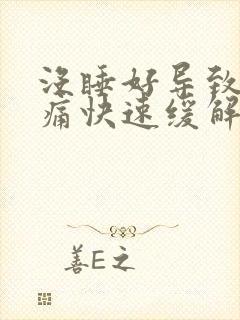 没睡好导致
痛快速缓解
善E之